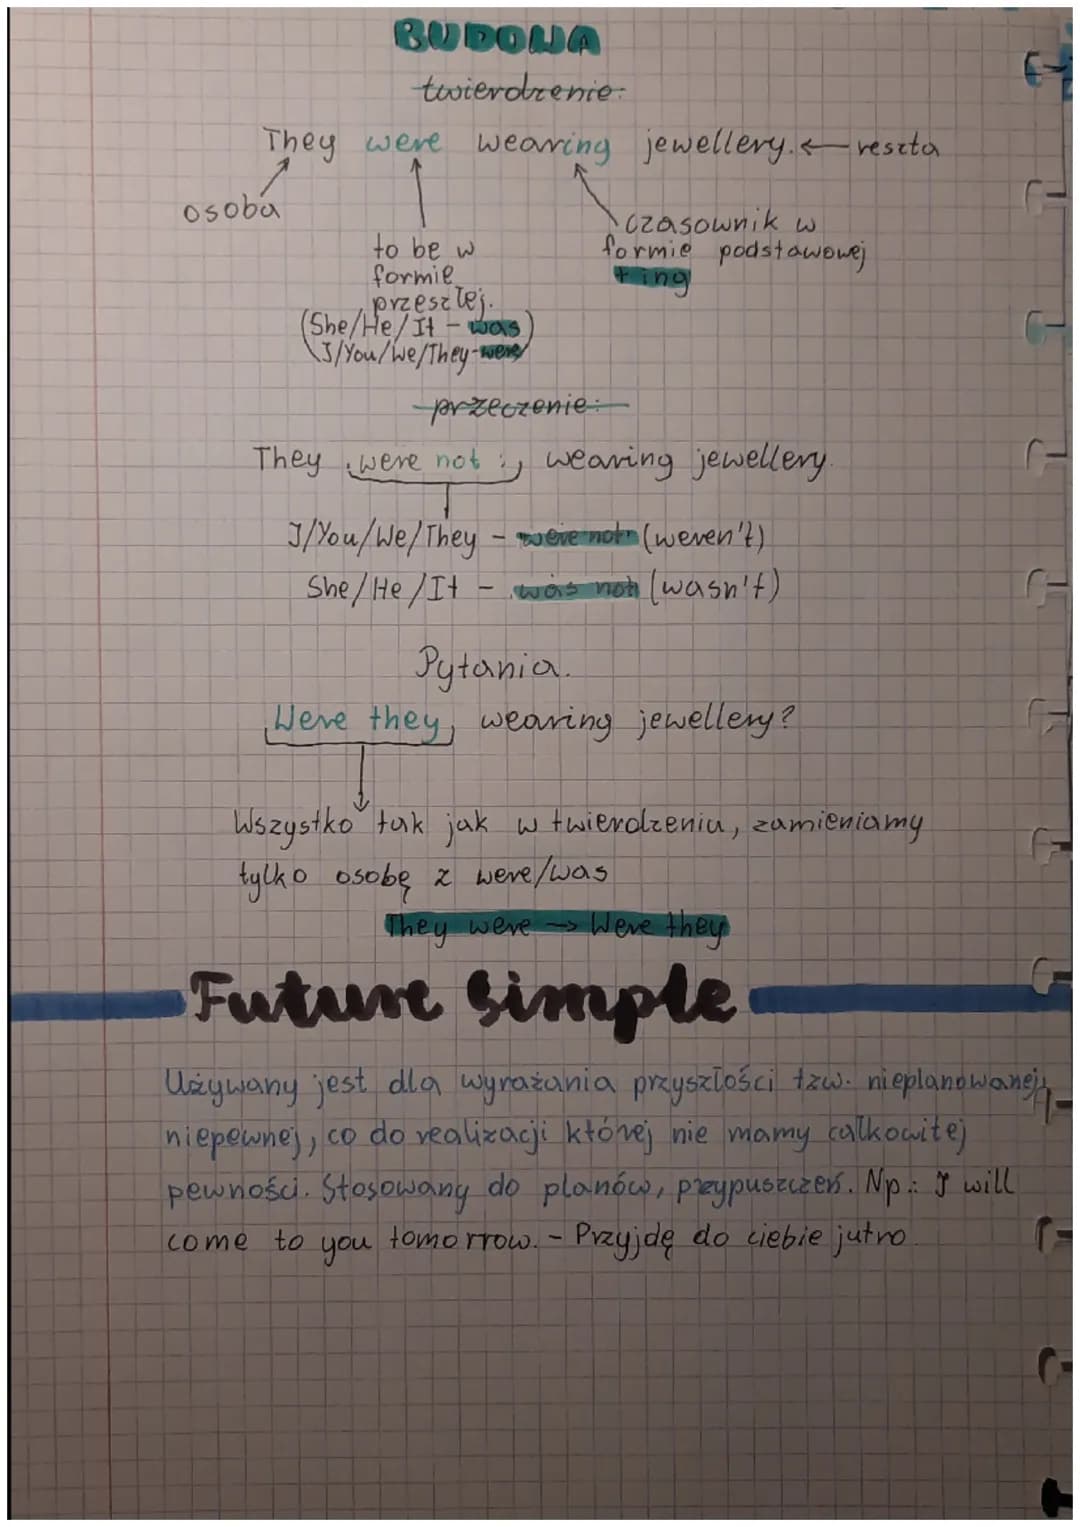 BUDOWA
twierdzenie:
They were wearing jewellery. ← reszta
osoba
to be w
formie
przeszłej.
(She/He/It - was)
I/You/We/They-were
czasownik w
formie podstawowej
+ing
przeczenie:
They were not wearing jewellery.
I/You/We/They - were not (weren't)
She/He/It - was not (wasn't)
Pytania.
Were they wearing jewellery?
Wszystko tak jak w twierdzeniu, zamieniamy
tylko osobę z were/was
They were → Were they
Future Simple
Używany jest dla wyrażania przyszłości tzw. nieplanowanej,
niepewnej, co do realizacji której nie mamy całkowitej
pewności. Stosowany do planów, przypuszczeń. Np.: I will
come to you tomorrow. - Przyjdę do ciebie jutro.